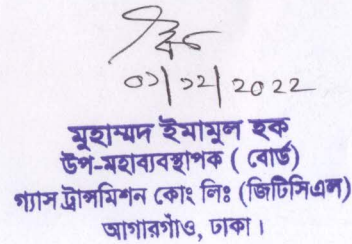 ০১/১২/2022
মুহাম্মদ ইমামুল হক
উপ-মহাব্যবস্থাপক ( বোর্ড)
গ্যাস ট্রান্সমিশন কোং লিঃ (জিটিসিএল)
আগারগাঁও, ঢাকা।